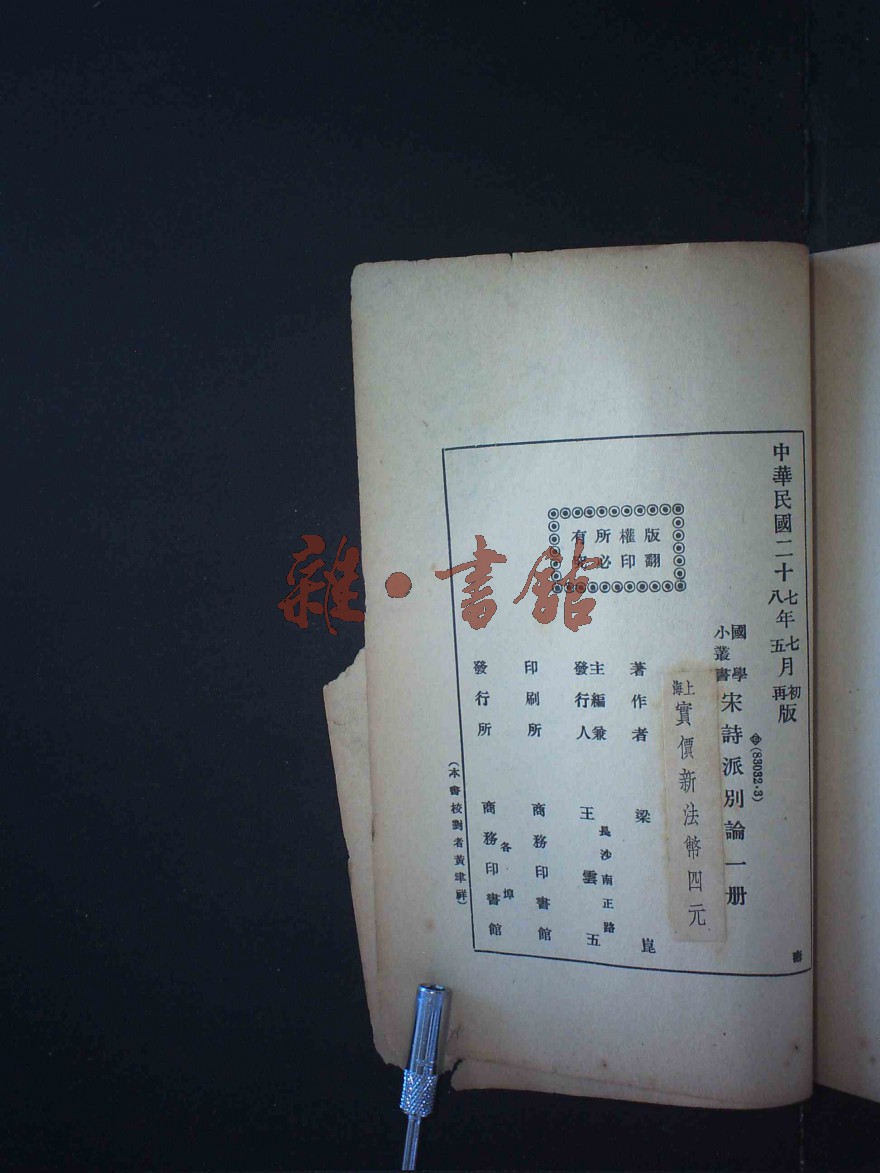 中華民國二十七年七月初版
八五再
(83032·3)
國學小叢書 宋詩派別論一册
上海 實價新法幣四元
著作者 梁崑
主編兼發行人 王雲五
長沙南正路
印刷所 商務印書館
發行所 商務印書館
各埠
(本書校對者黃聿祥)
版權所有
翻印必究
雜·書館